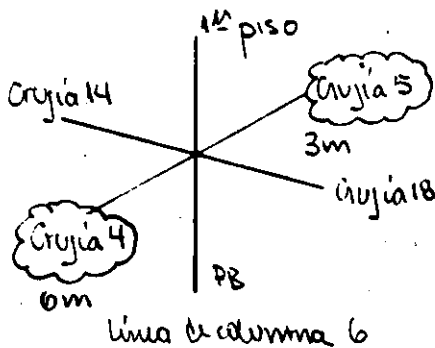 1er piso
Crujía 14
Crujía 5
3m
Crujía 18
Crujía 4
6m
PB
Línea de columna 6